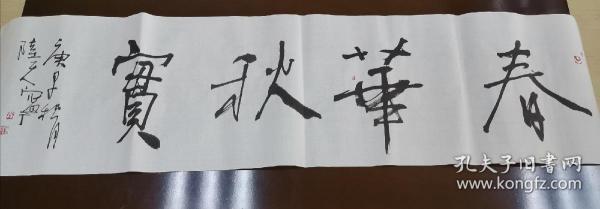 春華秋實
庚子秋月
陸天寧
孔夫子旧书网
www.kongfz.com